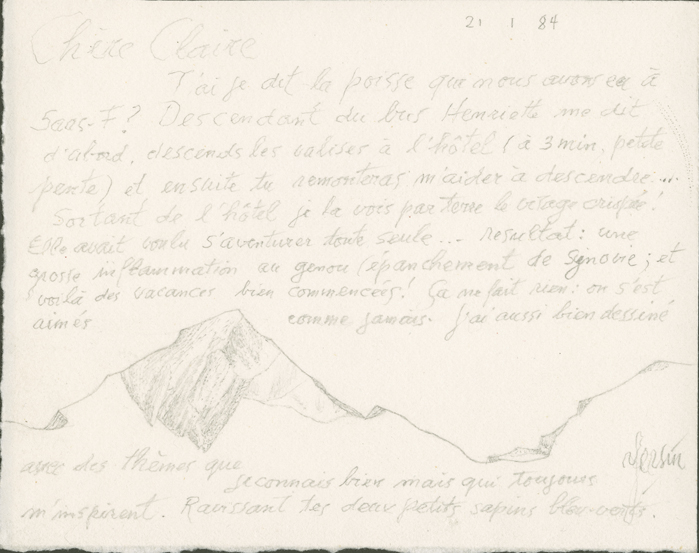 21 1 84
Chère Claire
T'ai je dit la poisse que nous avons eu à
Saas-F? Descendant du bus Henriette me dit
d'abord, descends les valises à l'hôtel (à 3 min, petite
pente) et ensuite tu remonteras m'aider à descendre...
Sortant de l'hôtel je la vois par terre le visage crispé!
Elle avait voulu s'aventurer toute seule... resultat: une
grosse inflammation au genou (épanchement de synovie; et
voilà des vacances bien commencées! Ça ne fait rien: on s'est
aimés comme jamais. J'ai aussi bien dessiné
avec des thèmes que
je connais bien mais qui toujours
m'inspirent. Ravissant tes deux petits sapins bleu-verts.